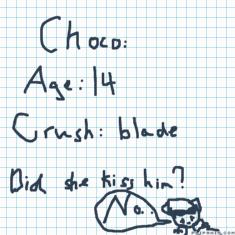 Choco:
Age: 14
Crush: blade
Did she kiss him?
No..